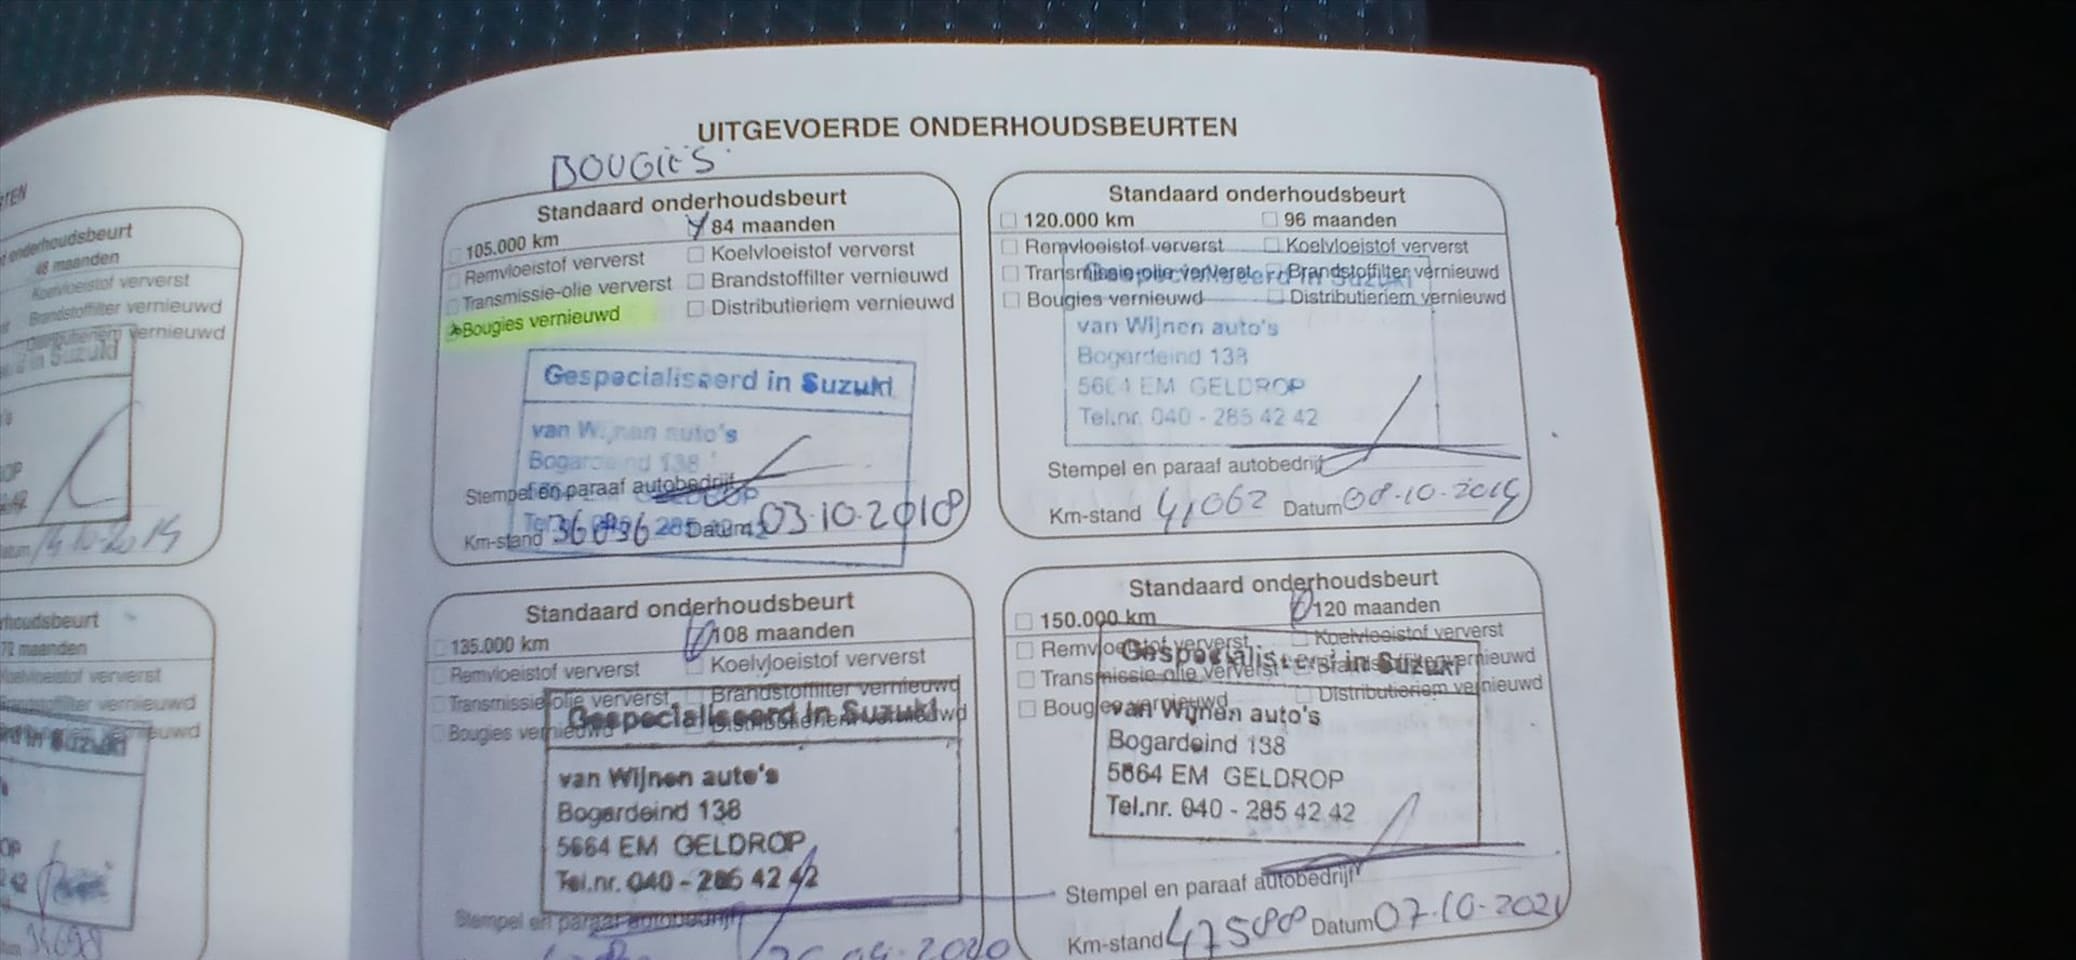 UITGEVOERDE ONDERHOUDSBEURTEN
BOUGIES
Standaard onderhoudsbeurt
105.000 km 84 maanden
Remvloeistof ververst Koelvloeistof ververst
Transmissie-olie ververst Brandstoffilter vernieuwd
Bougies vernieuwd Distributieriem vernieuwd
Gespecialiseerd in Suzuki
van Wijnen auto's
Bogardeind 138
Stempel en paraaf autobedrijf
Km-stand 36896 Datum 03-10-2018
Standaard onderhoudsbeurt
120.000 km 96 maanden
Remvloeistof ververst Koelvloeistof ververst
Transmissie-olie ververst Brandstoffilter vernieuwd
Bougies vernieuwd Distributieriem vernieuwd
Gespecialiseerd in Suzuki
van Wijnen auto's
Bogardeind 138
5664 EM GELDROP
Tel.nr. 040 - 285 42 42
Stempel en paraaf autobedrijf
Km-stand 41062 Datum 08-10-2019
Standaard onderhoudsbeurt
135.000 km 108 maanden
Remvloeistof ververst Koelvloeistof ververst
Transmissie-olie ververst Brandstoffilter vernieuwd
Bougies vernieuwd Distributieriem vernieuwd
Gespecialiseerd in Suzuki
van Wijnen auto's
Bogardeind 138
5664 EM GELDROP
Tel.nr. 040 - 285 42 42
Stempel en paraaf autobedrijf
2020
Standaard onderhoudsbeurt
150.000 km 120 maanden
Remvloeistof ververst Koelvloeistof ververst
Transmissie-olie ververst Brandstoffilter vernieuwd
Bougies vernieuwd Distributieriem vernieuwd
Gespecialiseerd in Suzuki
van Wijnen auto's
Bogardeind 138
5664 EM GELDROP
Tel.nr. 040 - 285 42 42
Stempel en paraaf autobedrijf
Km-stand 47588 Datum 07-10-2021
onderhoudsbeurt
48 maanden
Koelvloeistof ververst
Brandstoffilter vernieuwd
Distributieriem vernieuwd
in Suzuki
houdsbeurt
72 maanden
Koelvloeistof ververst
vernieuwd
in Suzuki